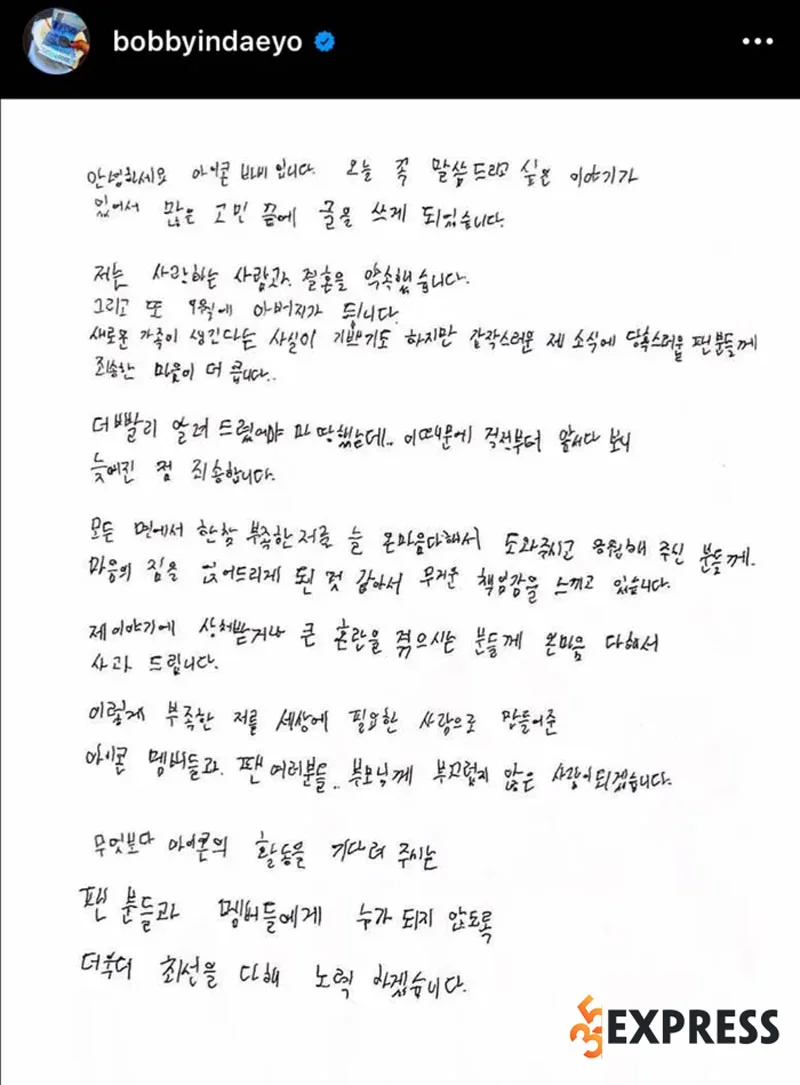 bobbyindaeyo
안녕하세요 아이콘 바비입니다. 오늘 꼭 말씀드리고 싶은 이야기가
있어서 많은 고민 끝에 글을 쓰게 되었습니다.
저는 사랑하는 사람과 결혼을 약속했습니다.
그리고 또 9월에 아버지가 됩니다.
새로운 가족이 생긴다는 사실이 기쁘기도 하지만 갑작스러운 제 소식에 당혹스러울 팬분들께
죄송한 마음이 더 큽니다..
더 빨리 알려 드렸어야 마땅했는데.. 이 때문에 걱정부터 앞서다 보니
늦어진 점 죄송합니다.
모든 면에서 한참 부족한 저를 늘 온마음다해서 도와주시고 응원해 주신 분들께.
마음의 짐을 얹어드리게 된 것 같아서 무거운 책임감을 느끼고 있습니다.
제 이야기에 상처받거나 큰 혼란을 겪으시는 분들께 온마음 다해서
사과 드립니다.
이렇게 부족한 저를 세상에 필요한 사람으로 만들어준
아이콘 멤버들과. 팬 여러분들.. 부모님께 부끄럽지 않은 사람이되겠습니다.
무엇보다 아이콘의 활동을 기다려 주시는
팬 분들과 멤버들에게 누가 되지 않도록
더욱더 최선을 다해 노력 하겠습니다.
35EXPRESS